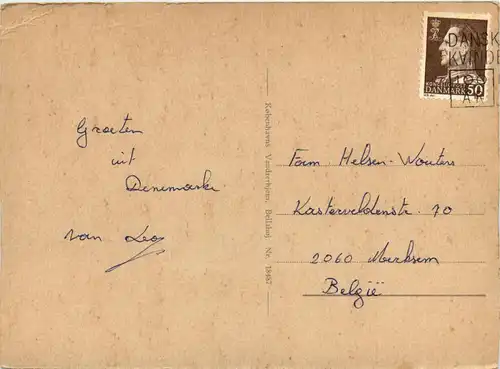 Groeten
uit
Denemarke
van Leo
Københavns Vandrerhjem, Bellahøj Nr. 18487
DANSK
KVINDE
100
DANMARK 50
Fam. Helsen-Wouters
Kasterveldenstr 70
2060 Merksem
België